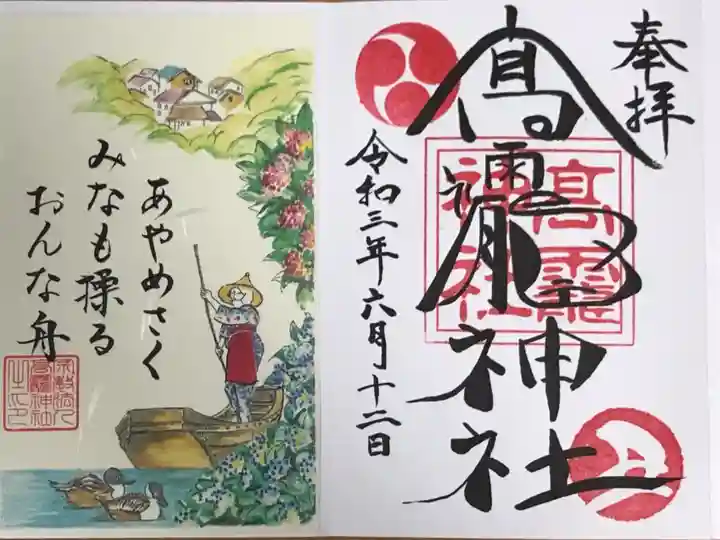 奉拝
高龗神社
高龗
神社
令和三年六月十二日
あやめさく
みなも揉る
おんな舟
高龗神社